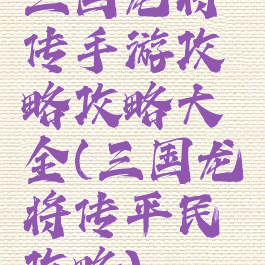 三国龙将
传手游攻
略攻略大
全(三国龙
将传平民
攻略)